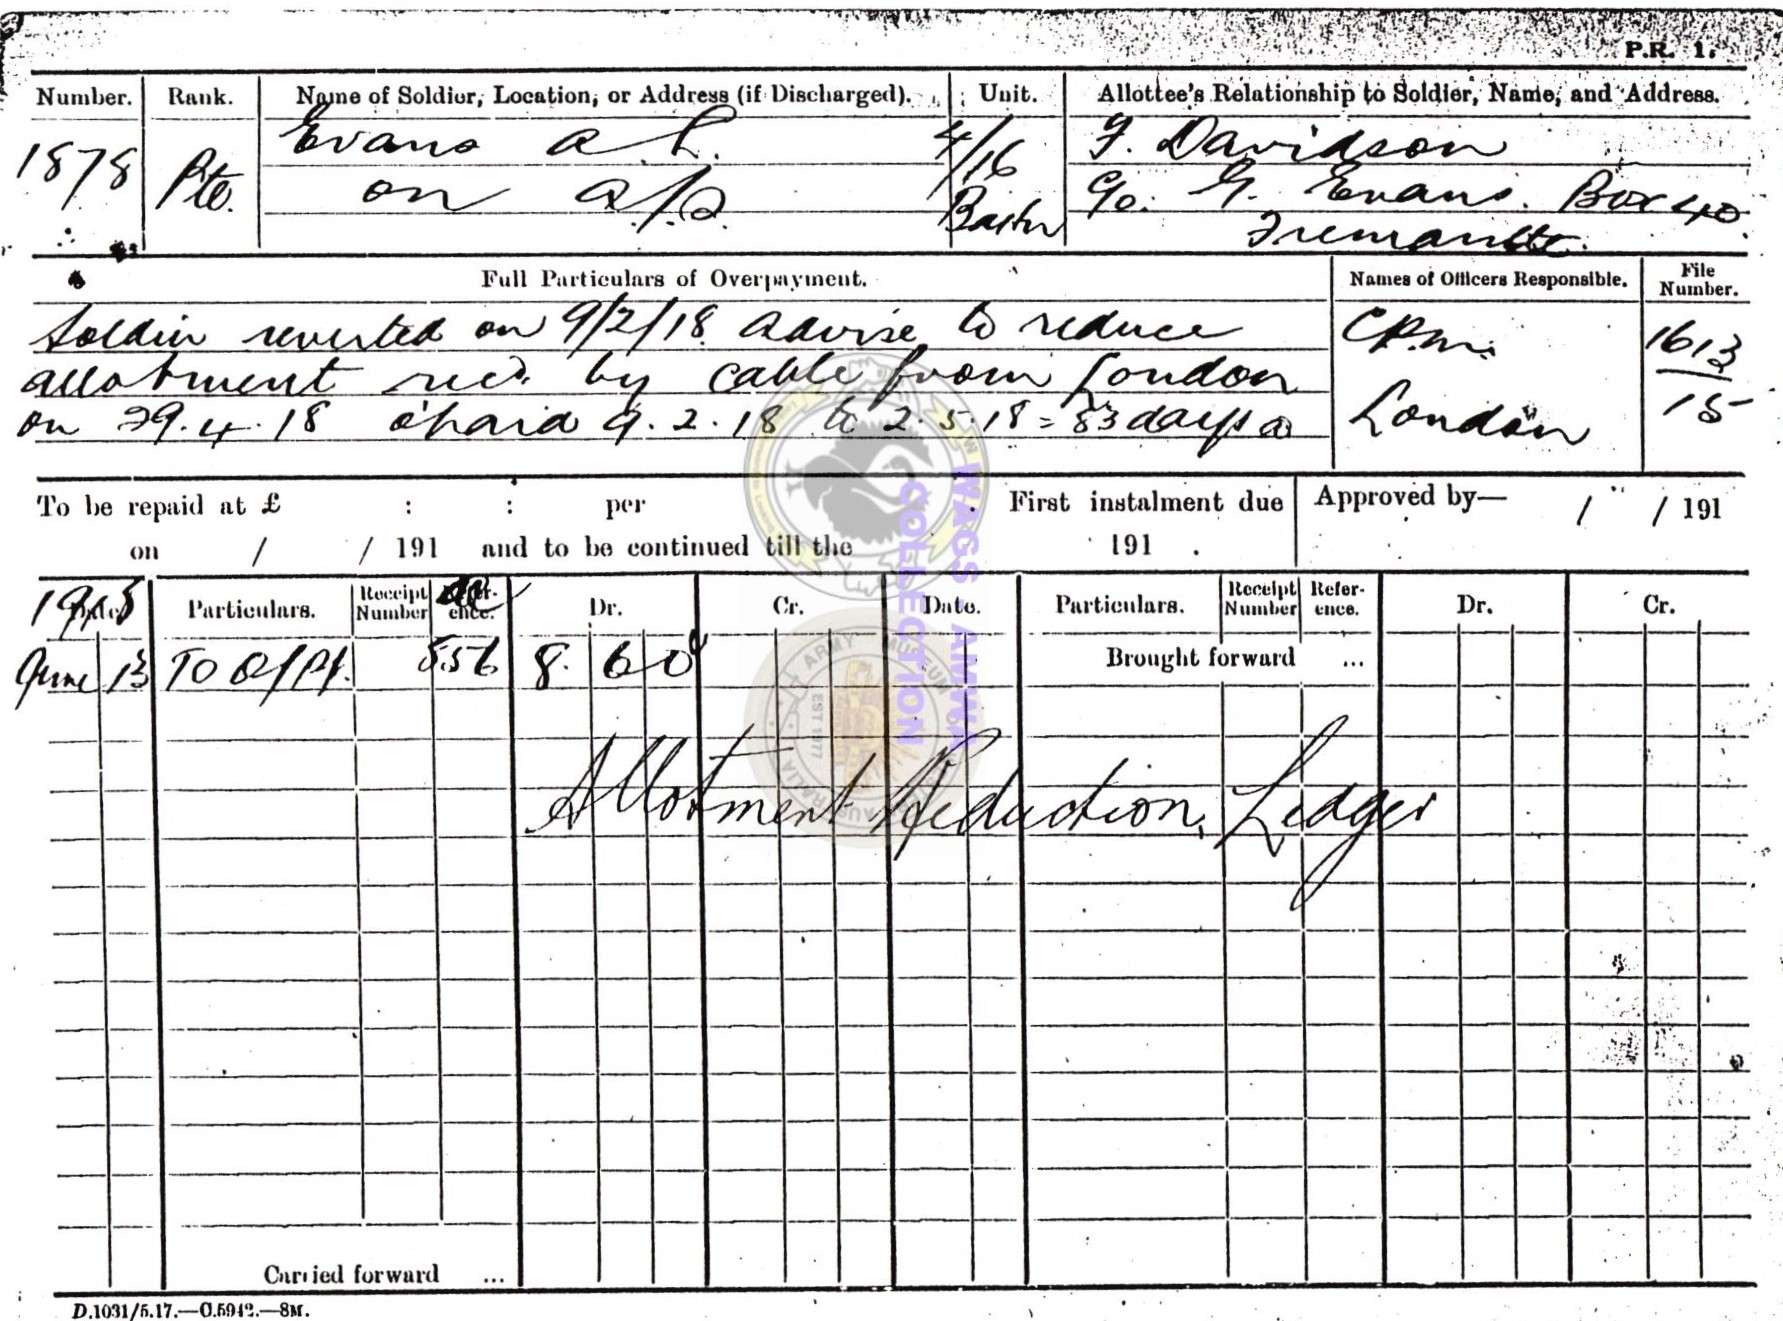 P.R. 1.
Number. Rank. Name of Soldier, Location, or Address (if Discharged). Unit. Allottee's Relationship to Soldier, Name, and Address.
1878 Pte. Evans A L. 4/16 F. Davidson
on a/s Battn C/o. G. Evans. Box 40.
Fremantle.
Full Particulars of Overpayment. Names of Officers Responsible. File Number.
Soldier reverted on 9/2/18 advise to reduce C.P.M. 1613
allotment recd. by cable from London
on 29.4.18 o'paid 9.2.18 to 2.5.18 = 83 days @ London 15
To be repaid at £ : : per . First instalment due Approved by— / / 191
on / / 191 and to be continued till the 191 .
1918 Date. Particulars. Receipt Number Refer-ence. Dr. Cr. Date. Particulars. Receipt Number Refer-ence. Dr. Cr.
June 13 To O/Pt. 556 8. 6 0 Brought forward ...
Allotment Reduction Ledger
Carried forward ...
D.1031/5.17.—C.5942.—8M.
WAGS - AMWA
COLLECTION
ARMY MUSEUM
AUSTRALIA
EST 1977